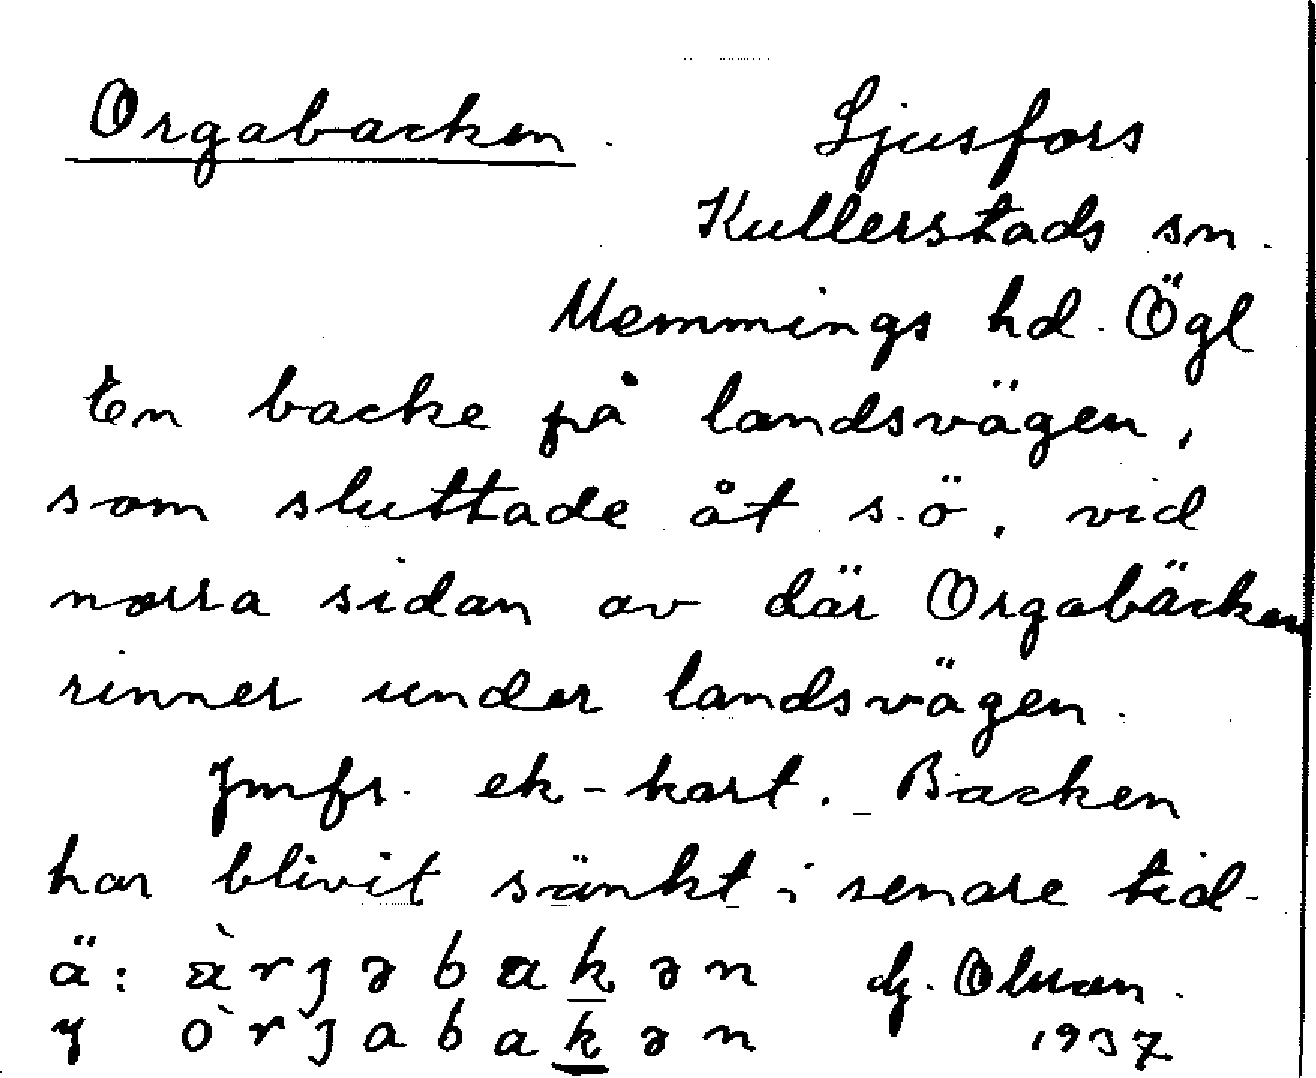 Orgabacken. Ljusfors
Kullerstads sn.
Memmings hd. Ögl
En backe på landsvägen,
som sluttade åt s.ö., vid
norra sidan av där Orgabäcken
rinner under landsvägen.
Jmfr. ek-kart. Backen
har blivit sänkt i senare tid.
ä: àrȷəbakən
y òrȷabakən 1937